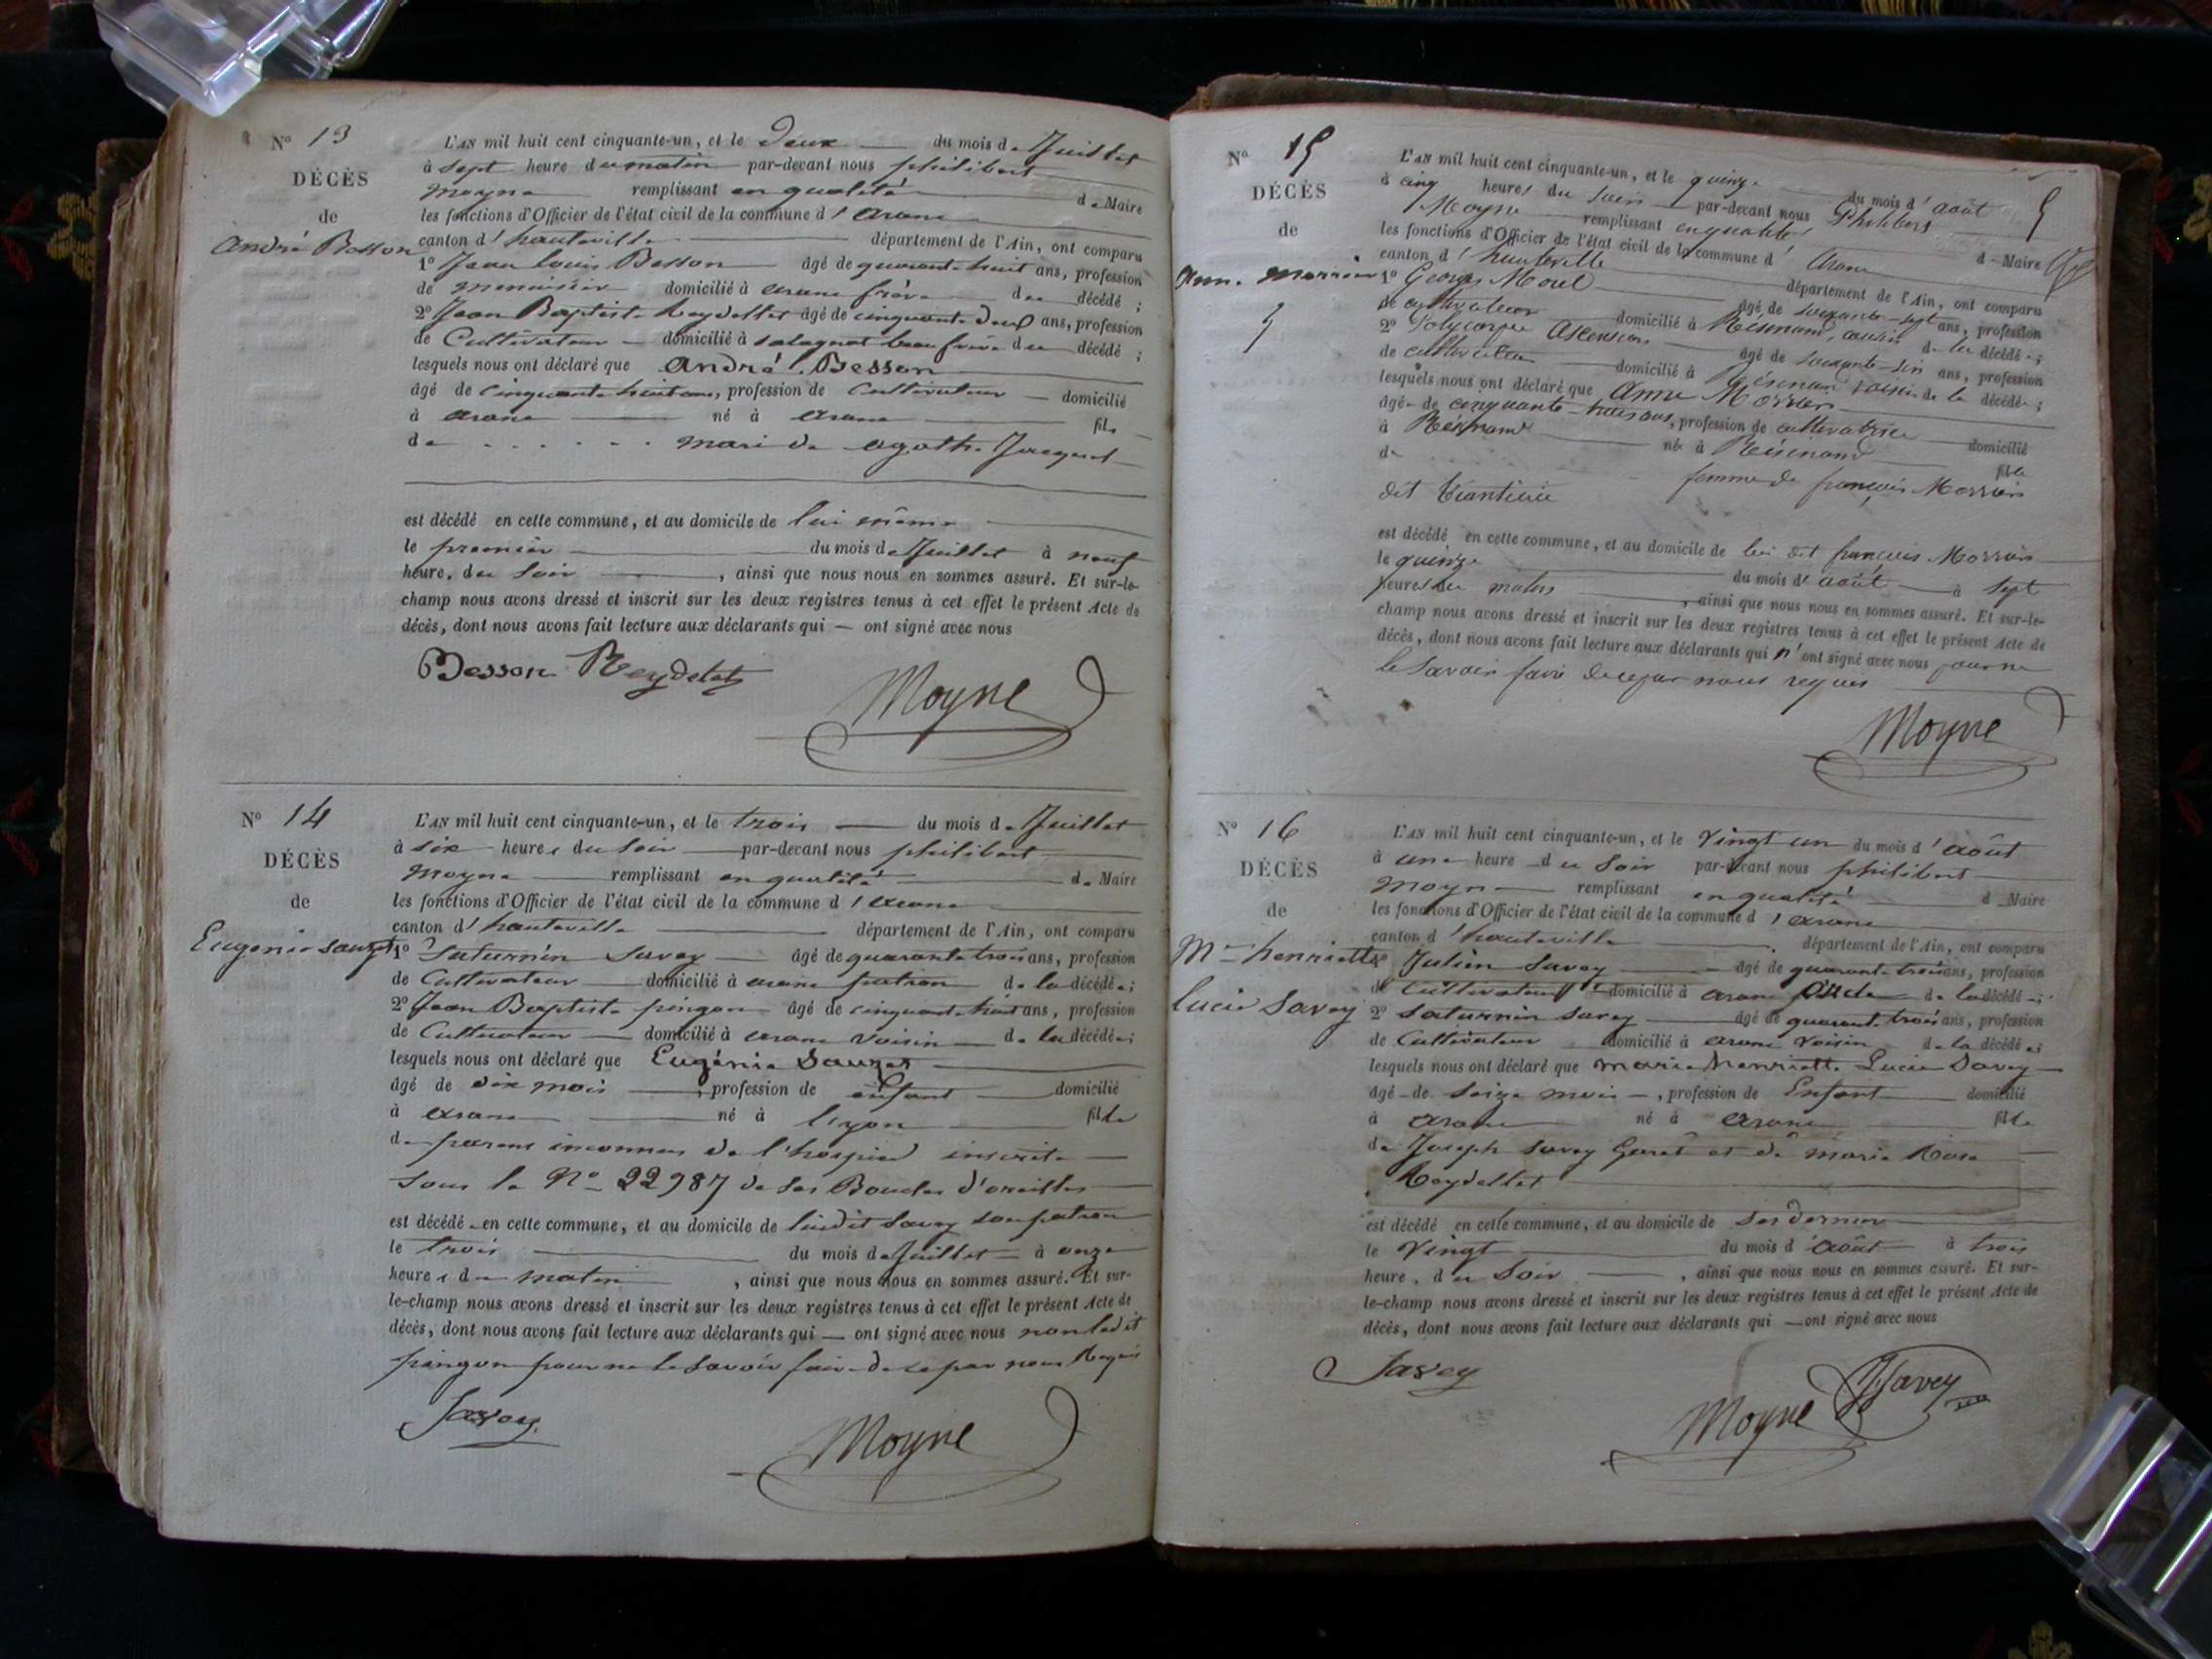 N° 13
DÉCÈS
de
André Besson
L'AN mil huit cent cinquante-un, et le Deux du mois de Juillet
à sept heure du matin par-devant nous philibert
Moyne remplissant en qualité de Maire
les fonctions d'Officier de l'état civil de la commune d'arane
canton d'hauteville département de l'Ain, ont comparu
1° Jean Louis Besson âgé de quarante huit ans, profession
de menuisier domicilié à arane frère du décédé ;
2° Jean Baptiste Reydellet âgé de cinquante deux ans, profession
de Cultivateur domicilié à beau frère du décédé ;
lesquels nous ont déclaré que André Besson
âgé de cinquante huit ans, profession de Cultivateur domicilié
à arane né à arane fils
de . . . . . . mari de agathe Jacquet
est décédé en cette commune, et au domicile de lui même
le premier du mois de Juillet à neuf
heure, du soir , ainsi que nous nous en sommes assuré. Et sur-le-
champ nous avons dressé et inscrit sur les deux registres tenus à cet effet le présent Acte de
décès, dont nous avons fait lecture aux déclarants qui — ont signé avec nous
Besson Reydelet
Moyne
N° 14
DÉCÈS
de
Eugenie Sauzet
L'AN mil huit cent cinquante-un, et le trois du mois de Juillet
à six heures du soir par-devant nous philibert
Moyne remplissant en qualité de Maire
les fonctions d'Officier de l'état civil de la commune d'arane
canton d'hauteville département de l'Ain, ont comparu
1° Saturnin Savey âgé de quarante trois ans, profession
de Cultivateur domicilié à arane patron de la décédée ;
2° Jean Baptiste pingon âgé de cinquante huit ans, profession
de Cultivateur domicilié à arane voisin de la décédée ;
lesquels nous ont déclaré que Eugénie Sauzet
âgé de six mois , profession de enfant domicilié
à arane né à lyon fille
de parens inconnus de l'hospice inscrite
sous le N° 22987 de ses Boucles d'oreilles
est décédé en cette commune, et au domicile de ludit Savey son patron
le trois du mois de Juillet à onze
heures du matin , ainsi que nous nous en sommes assuré. Et sur-
le-champ nous avons dressé et inscrit sur les deux registres tenus à cet effet le présent Acte de
décès, dont nous avons fait lecture aux déclarants qui — ont signé avec nous non ledit
pingon pour ne le savoir faire de ce par nous Requis
Savey
Moyne
N° 15
DÉCÈS
de
Anne Morrier
L'AN mil huit cent cinquante-un, et le quinze du mois d'août
à cinq heures du soir par-devant nous Philibert
Moyne remplissant en qualité de Maire
les fonctions d'Officier de l'état civil de la commune d'Arane
canton d'hauteville département de l'Ain, ont comparu
1° Georges Morel âgé de soixante-sept ans, profession
de cultivateur domicilié à Résinand, cousin de la décédée ;
2° Polycarpe Ascension âgé de soixante-six ans, profession
de cultivateur domicilié à Résinand voisin de la décédée ;
lesquels nous ont déclaré que Anne Morrier
âgée de cinquante-trois ans, profession de cultivatrice domicilié
à Résinand née à Résinand fille
de femme de françois Morrier
dit
est décédé en cette commune, et au domicile de lui dit françois Morrier
le quinze du mois d'août à sept
heures du matin , ainsi que nous nous en sommes assuré. Et sur-le-
champ nous avons dressé et inscrit sur les deux registres tenus à cet effet le présent Acte de
décès, dont nous avons fait lecture aux déclarants qui n'ont signé avec nous pour ne
le savoir faire de ce par nous requis
Moyne
N° 16
DÉCÈS
de
Mie henriette
Lucie Savey
L'AN mil huit cent cinquante-un, et le vingt un du mois d'août
à une heure du soir par-devant nous philibert
Moyne remplissant en qualité de Maire
les fonctions d'Officier de l'état civil de la commune d'arane
canton d'hauteville département de l'Ain, ont comparu
1° Julien Savey âgé de quarante trois ans, profession
de Cultivateur domicilié à arane Oncle de la décédée ;
2° Saturnin Savey âgé de quarante trois ans, profession
de Cultivateur domicilié à arane voisin de la décédée ;
lesquels nous ont déclaré que marie henriette Lucie Savey
âgé de seize mois , profession de Enfant domicilié
à arane né à arane fille
de Joseph Savey Garet et de marie Rose
Reydellet
est décédé en cette commune, et au domicile de ses derniers
le vingt du mois d'août à trois
heure, du soir , ainsi que nous nous en sommes assuré. Et sur-
le-champ nous avons dressé et inscrit sur les deux registres tenus à cet effet le présent Acte de
décès, dont nous avons fait lecture aux déclarants qui — ont signé avec nous
Savey
Moyne
JSavey